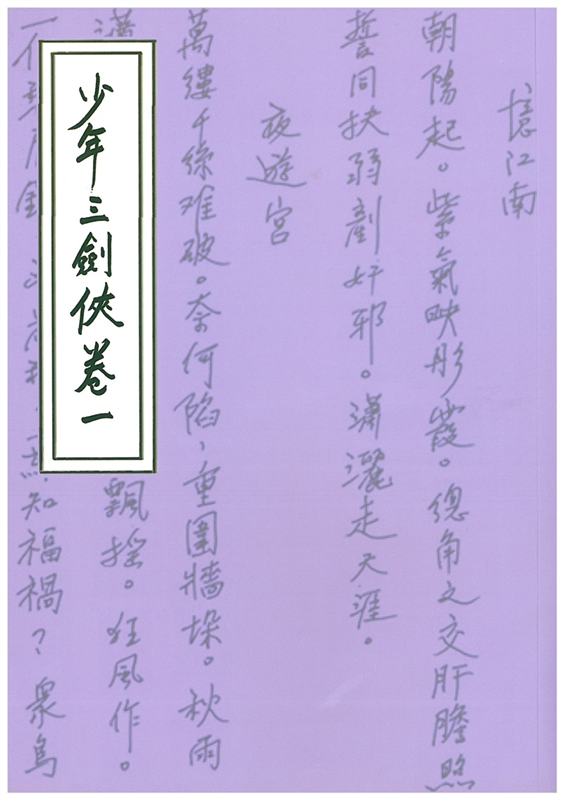 憶江南
朝陽起。紫氣映彤霞。總角之交肝膽照
誓同扶弱剷奸邪。瀟灑走天涯。
夜遊宮
萬縷千絲难破。奈何陷，重圍牆垛。秋雨
飄搖。狂風作。
知福禍？衆鳥
少年三劍俠卷一